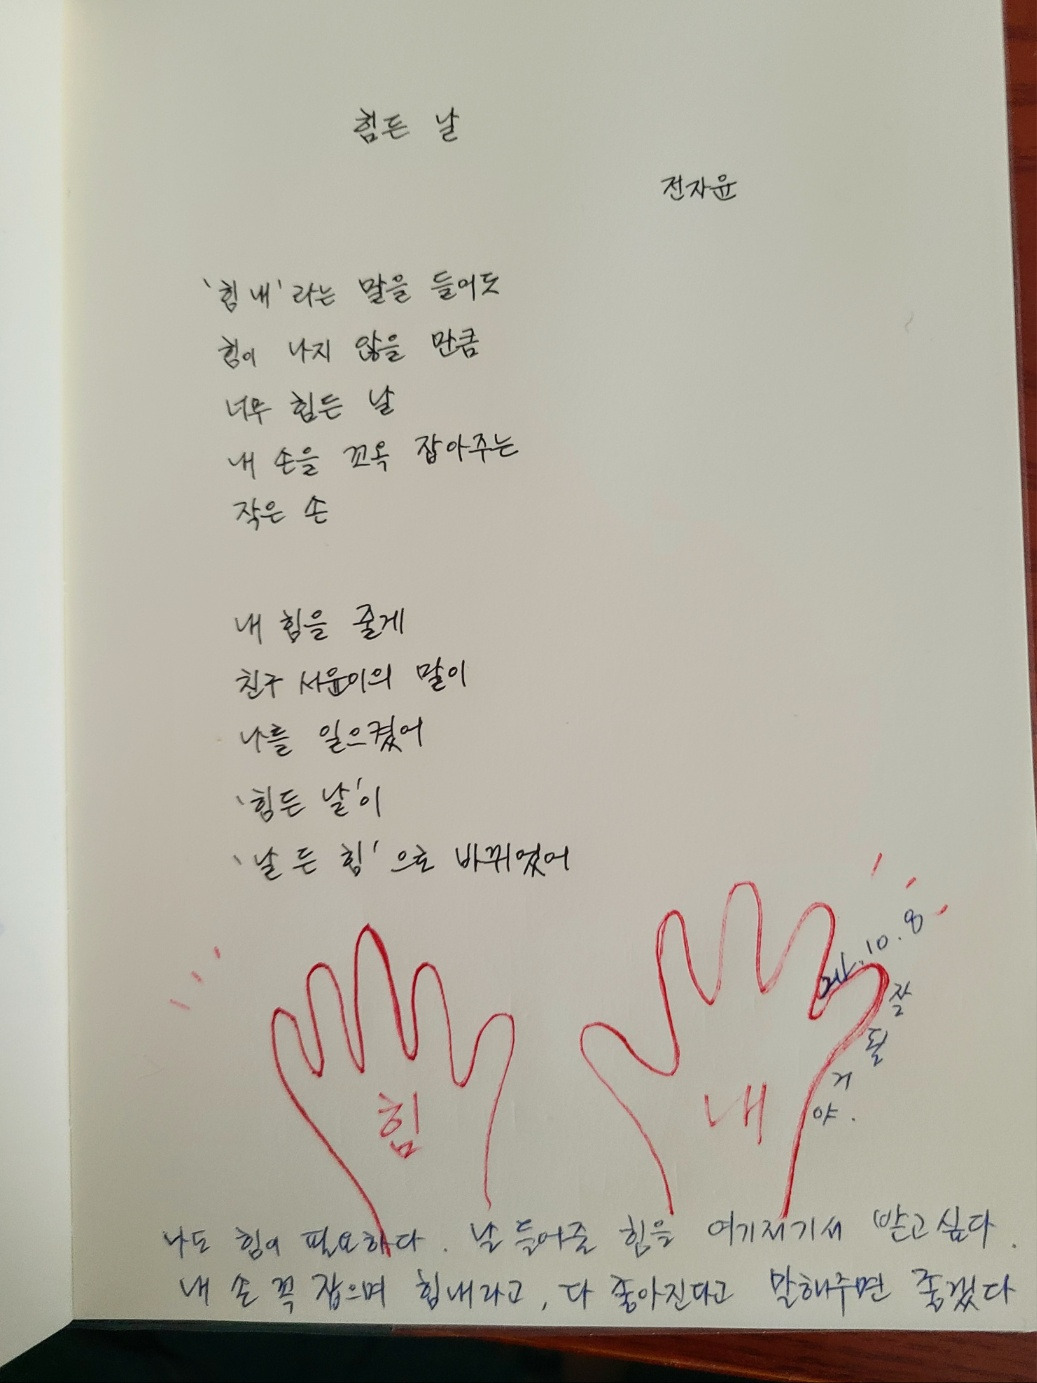 힘든 날
전자윤
'힘내'라는 말을 들어도
힘이 나지 않을 만큼
너무 힘든 날
내 손을 꼬옥 잡아주는
작은 손
내 힘을 줄게
친구 서윤이의 말이
나를 일으켰어
'힘든 날'이
'날 든 힘'으로 바뀌었어
힘
내
잘 될 거야.
나도 힘이 필요하다. 날 들어줄 힘을 여기저기서 받고싶다.
내 손 꼭 잡으며 힘내라고, 다 좋아진다고 말해주면 좋겠다